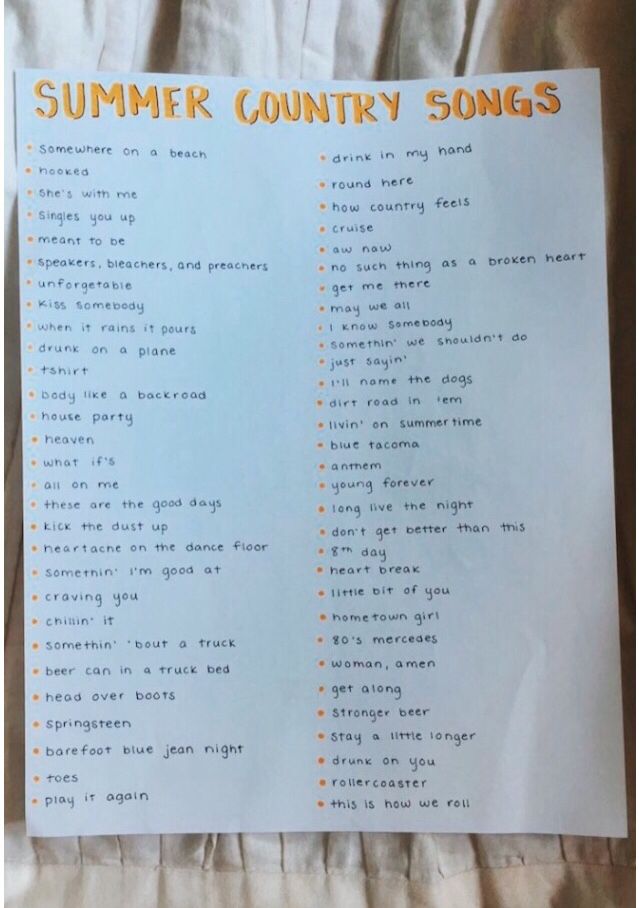 SUMMER COUNTRY SONGS
• somewhere on a beach
• hooked
• she's with me
• singles you up
• meant to be
• speakers, bleachers, and preachers
• unforgetable
• kiss somebody
• when it rains it pours
• drunk on a plane
• tshirt
• body like a backroad
• house party
• heaven
• what if's
• all on me
• these are the good days
• kick the dust up
• heartache on the dance floor
• somethin' i'm good at
• craving you
• chillin' it
• somethin' 'bout a truck
• beer can in a truck bed
• head over boots
• springsteen
• barefoot blue jean night
• toes
• play it again
• drink in my hand
• round here
• how country feels
• cruise
• aw naw
• no such thing as a broken heart
• get me there
• may we all
• i know somebody
• somethin' we shouldn't do
• just sayin'
• i'll name the dogs
• dirt road in 'em
• livin' on summertime
• blue tacoma
• anthem
• young forever
• long live the night
• don't get better than this
• 8th day
• heart break
• little bit of you
• hometown girl
• 80's mercedes
• woman, amen
• get along
• stronger beer
• stay a little longer
• drunk on you
• rollercoaster
• this is how we roll